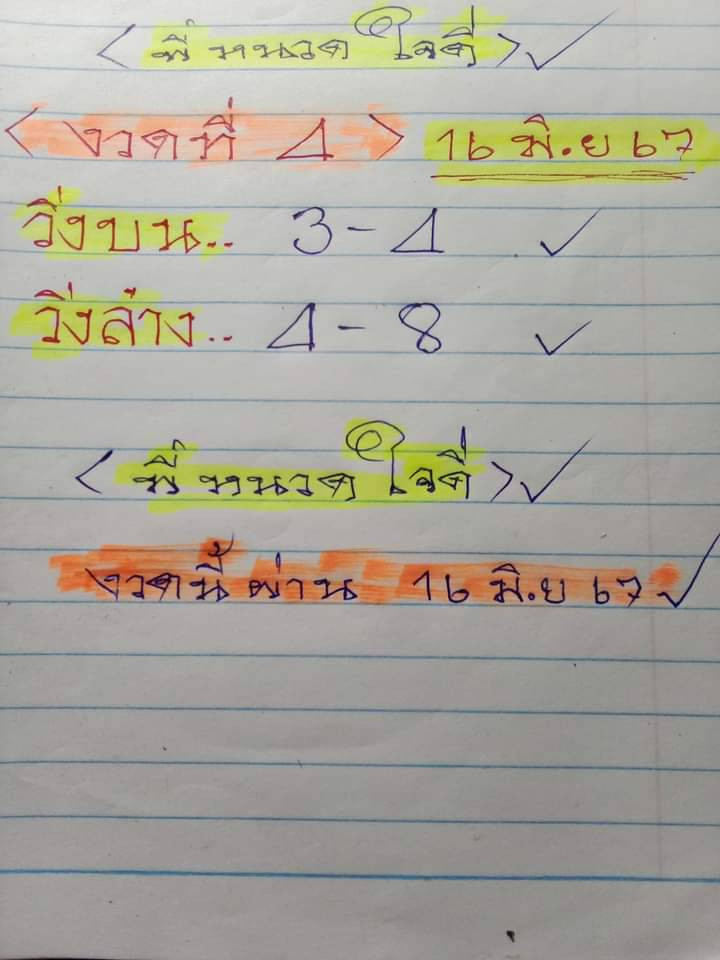 < พี่ หนวด ใจดี > ✓
< งวดที่ 4 > 16 มิ.ย 67
วิ่งบน.. 3 - 4 ✓
วิ่งล่าง.. 4 - 8 ✓
< พี่ หนวด ใจดี > ✓
งวดนี้ ผ่าน 16 มิ.ย 67 ✓